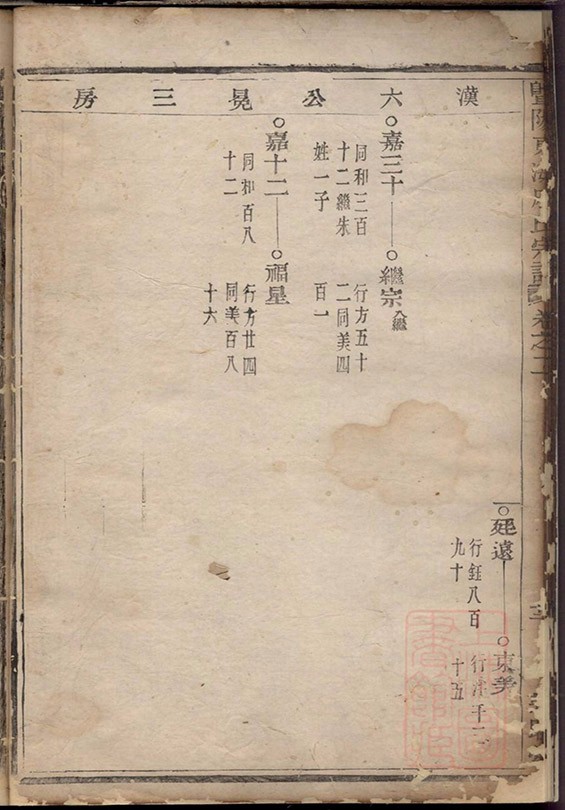 漢六公晃三房
嘉三十
同和三百
十二繼朱
姓一子
繼宗入繼
行方五十
二同美四
百一
嘉十二
同和百八
十二
福星
行方廿四
同美百八
十六
廷遠
行鈺八百
九十
東美
行 千二
十五
卷之二
三